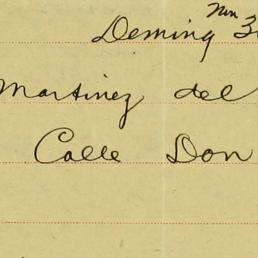 Deming Nov 3
Martinez del
Calle Don